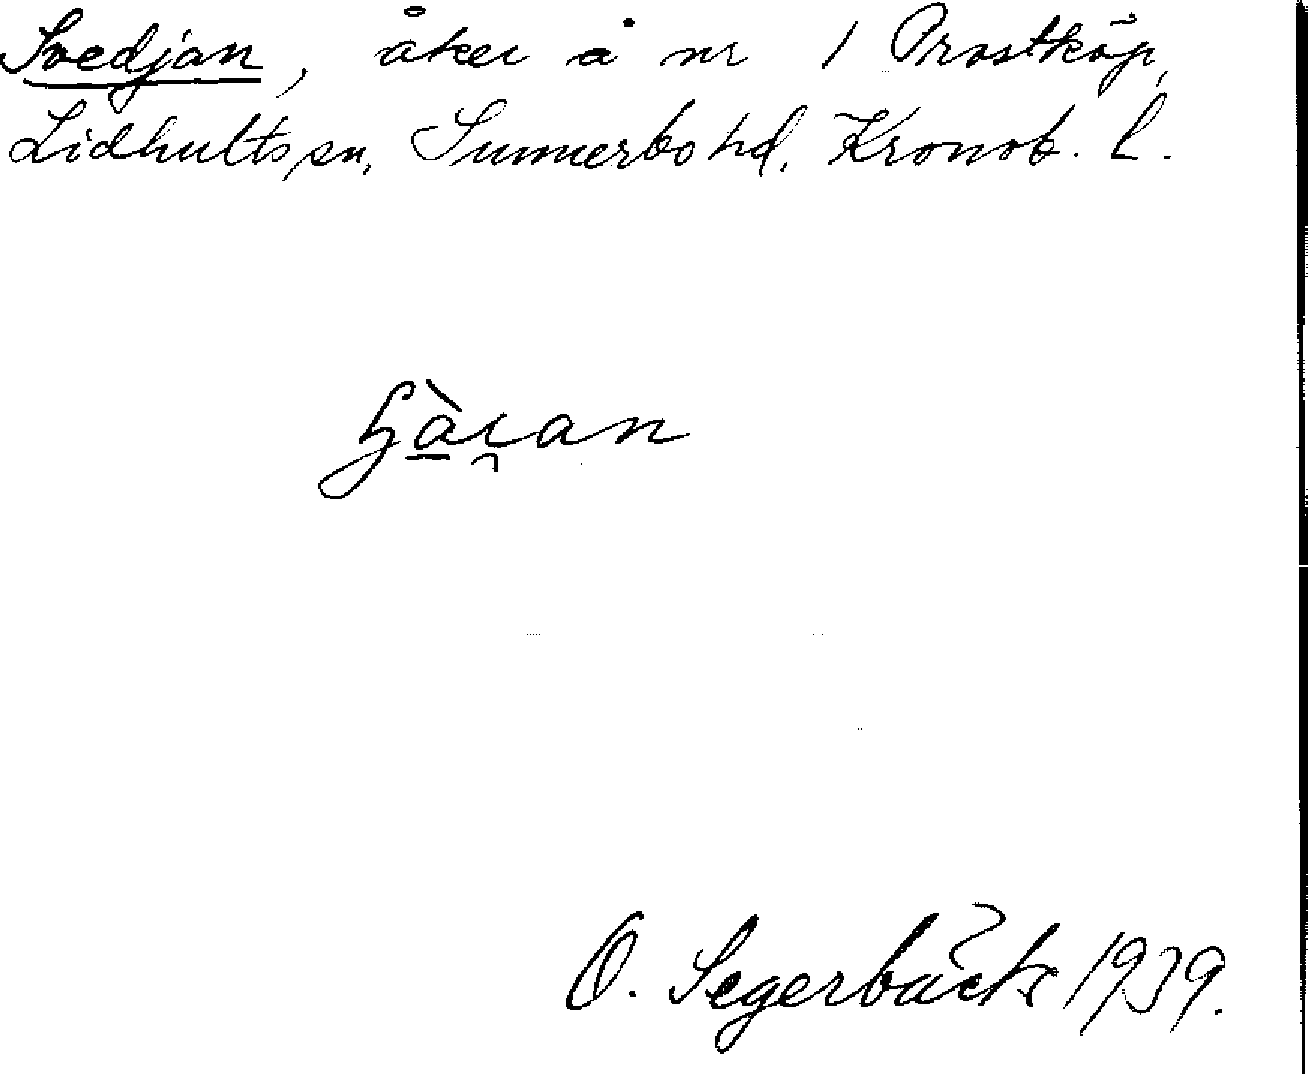 Svedjan, åker å nr 1 Prostköp,
Lidhults sn, Sunnerbo hd. Kronob. l.
O. Segerbäck 1939.